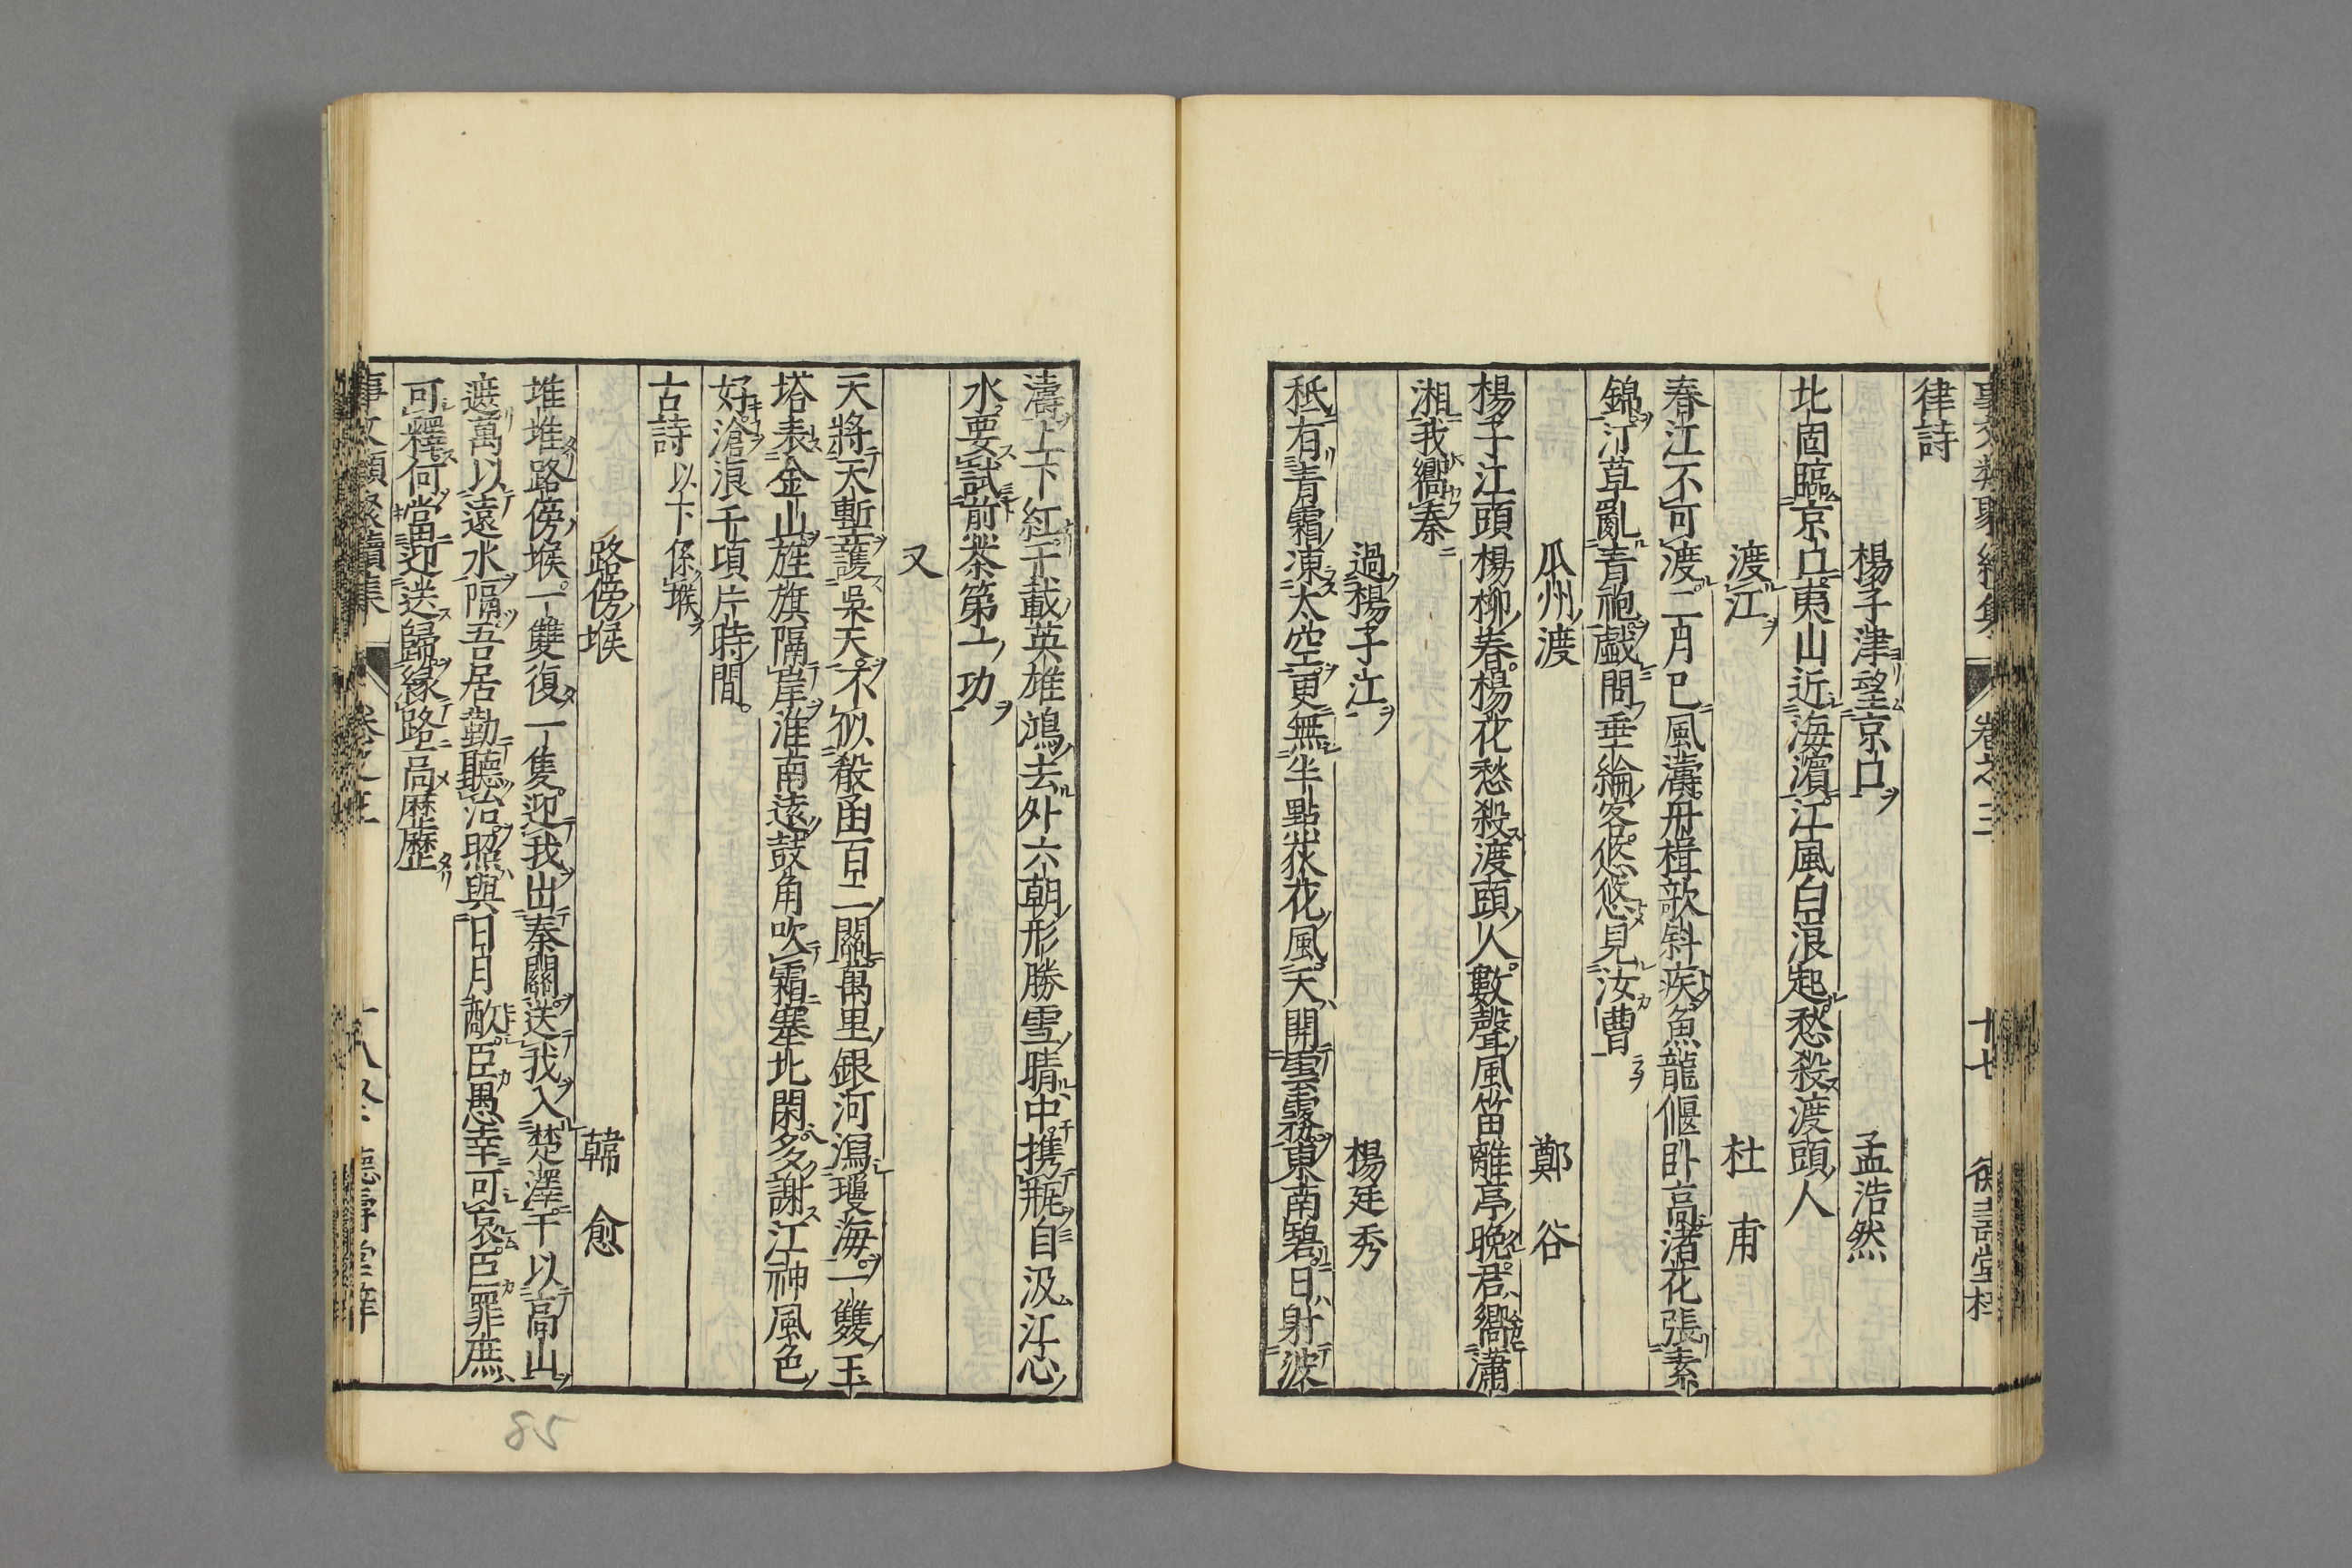 律詩
楊子津望京口 孟浩然
北固臨京口夷山近海濱江風白浪起愁殺渡頭人
渡江 杜甫
春江不可渡二月已風濤舟楫欹斜疾魚龍偃卧高渚花張素
錦汀草亂青袍戯問垂綸客悠悠見汝曹
瓜州渡 鄭谷
楊子江頭楊柳春楊花愁殺渡頭人數聲風笛離亭晩君嚮瀟
湘我嚮秦
過楊子江 楊廷秀
秪有青霜凍太空更無半點荻花風天開雲霧東南碧日射波
濤上下紅千載英雄鴻去外六朝形勝雪晴中携瓶自汲江心
水要試前茶第一功
又
天將天塹護吳天不似殽函百二關萬里銀河瀉瓊海一雙玉
塔表金山旌旗隔岸淮南遠鼓角吹霜塞北閑多謝江神風色
好滄浪千頃片時間
古詩 以下係堠
路傍堠 韓愈
堆堆路傍堠一雙復一隻迎我出秦關送我入楚澤千以高山
遮萬以遠水隔吾居勤聽治照與日月敵臣愚幸可哀臣罪庶
可釋何當迎送歸緣路高歷歷